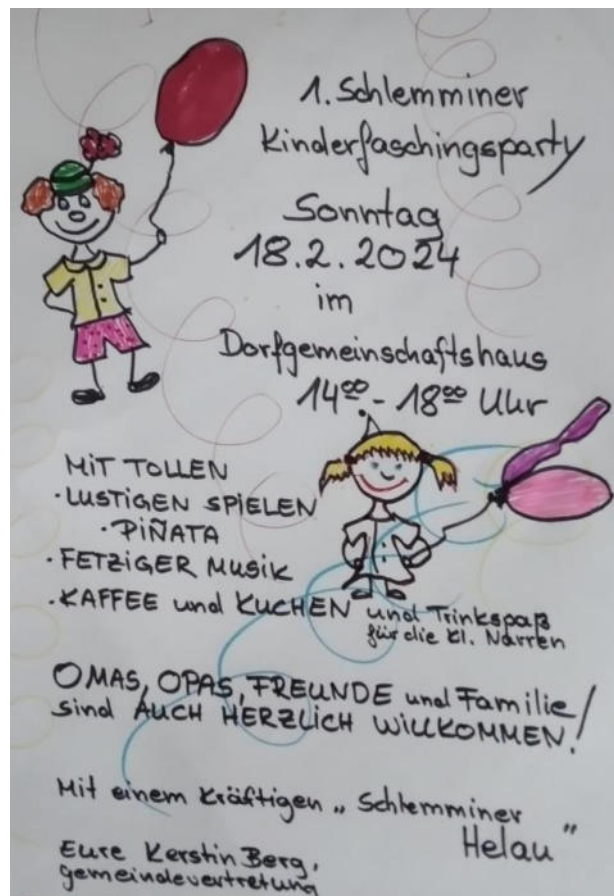 1. Schlemminer
Kinderfaschingsparty
Sonntag
18.2.2024
im
Dorfgemeinschaftshaus
14⁰⁰ - 18⁰⁰ Uhr
MIT TOLLEN
· LUSTIGEN SPIELEN
· PIÑATA
· FETZIGER MUSIK
· KAFFEE und KUCHEN und Trinkspaß
für die kl. Narren
OMAS, OPAS, FREUNDE und Familie
sind AUCH HERZLICH WILLKOMMEN!
Mit einem kräftigen „Schlemminer
Helau"
Eure Kerstin Berg,
gemeindevertretung